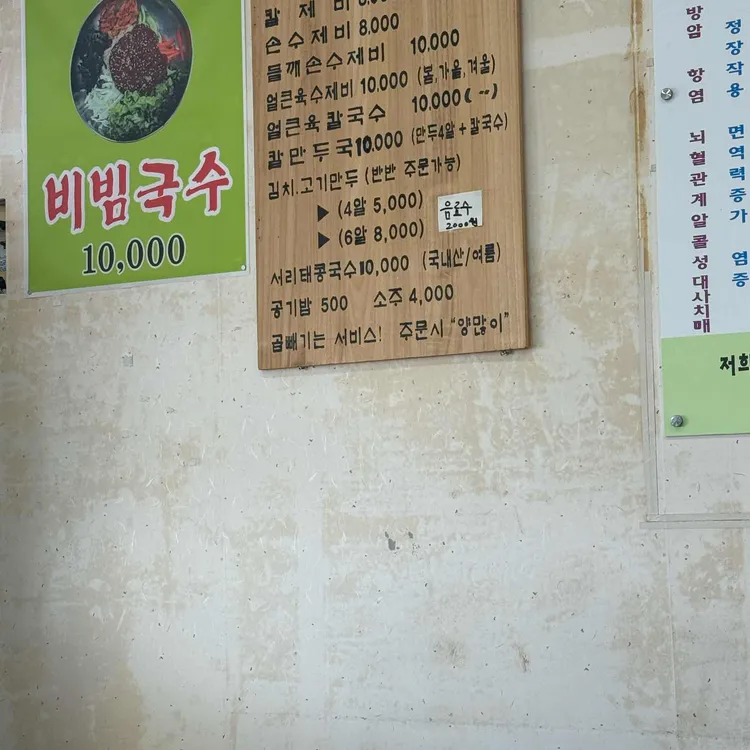 비빔국수
10,000
칼제비 8.000
손수제비 8.000
들깨손수제비 10.000
얼큰육수제비 10.000 (봄,가을,겨울)
얼큰육칼국수 10.000(〃 )
칼만두국 10.000 (만두4알+칼국수)
김치.고기만두 (반반 주문가능)
▶ (4알 5,000)
▶ (6알 8,000)
음료수
2000원
서리태콩국수 10,000 (국내산/여름)
공기밥 500 소주 4,000
곱빼기는 서비스! 주문시 "양많이"
정장작용 면역력증가 염증
방암 항염 뇌혈관계알콜성대사치매
저희